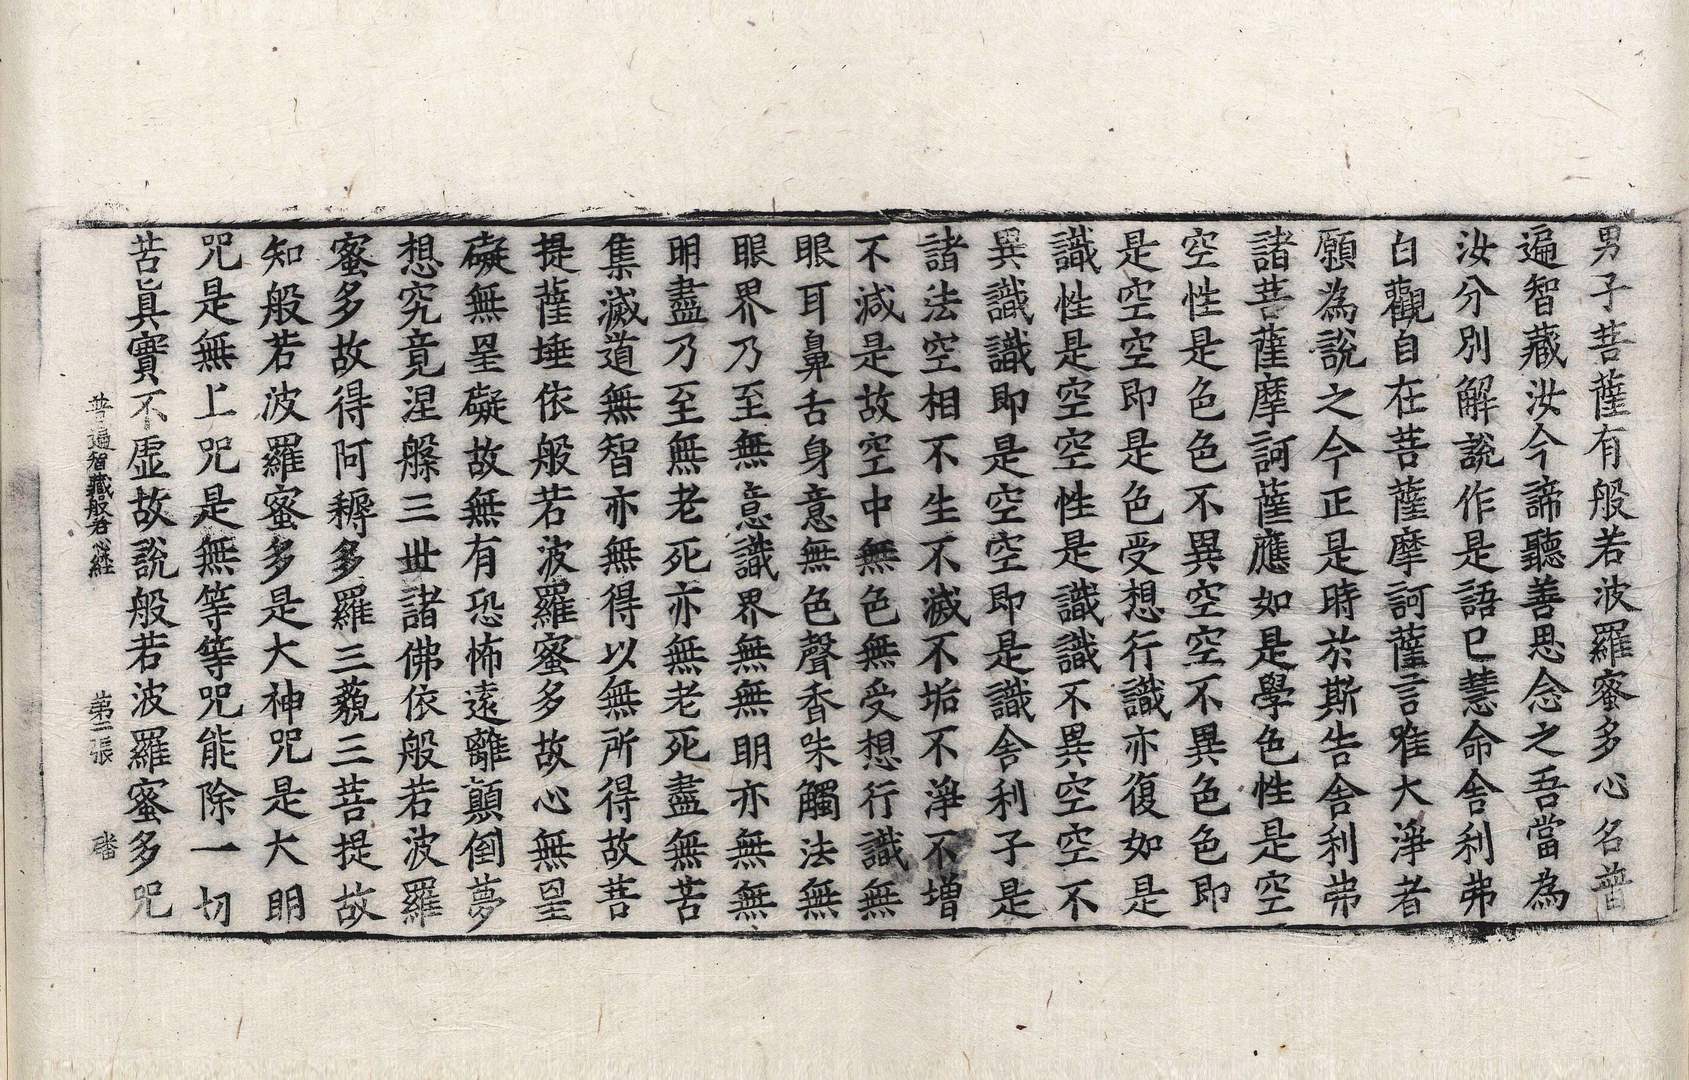 男子菩薩有般若波羅蜜多心名普
遍智藏汝今諦聽善思念之吾當為
汝分別解說作是語已慧命舍利弗
白觀自在菩薩摩訶薩言唯大淨者
願為說之今正是時於斯告舍利弗
諸菩薩摩訶薩應如是學色性是空
空性是色色不異空空不異色色即
是空空即是色受想行識亦復如是
識性是空空性是識識不異空空不
異識識即是空空即是識舍利子是
諸法空相不生不滅不垢不淨不增
不減是故空中無色無受想行識無
眼耳鼻舌身意無色聲香味觸法無
眼界乃至無意識界無無明亦無無
明盡乃至無老死亦無老死盡無苦
集滅道無智亦無得以無所得故菩
提薩埵依般若波羅蜜多故心無罣
礙無罣礙故無有恐怖遠離顛倒夢
想究竟涅槃三世諸佛依般若波羅
蜜多故得阿耨多羅三藐三菩提故
知般若波羅蜜多是大神咒是大明
咒是無上咒是無等等咒能除一切
苦真實不虛故說般若波羅蜜多咒
普遍智藏般若心經 第二張